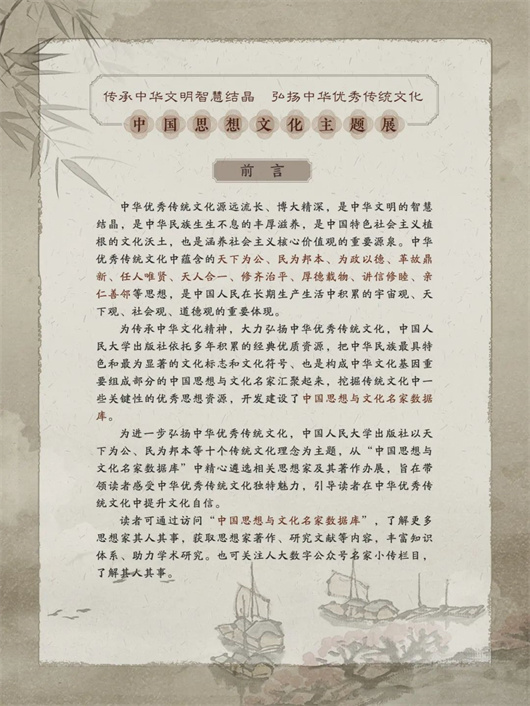 传承中华文明智慧结晶　弘扬中华优秀传统文化
中国思想文化主题展
前 言
中华优秀传统文化源远流长、博大精深，是中华文明的智慧
结晶，是中华民族生生不息的丰厚滋养，是中国特色社会主义植
根的文化沃土，也是涵养社会主义核心价值观的重要源泉。中华
优秀传统文化中蕴含的天下为公、民为邦本、为政以德、革故鼎
新、任人唯贤、天人合一、修齐治平、厚德载物、讲信修睦、亲
仁善邻等思想，是中国人民在长期生产生活中积累的宇宙观、天
下观、社会观、道德观的重要体现。
为传承中华文化精神，大力弘扬中华优秀传统文化，中国人
民大学出版社依托多年积累的经典优质资源，把中华民族最具特
色和最为显著的文化标志和文化符号、也是构成中华文化基因重
要组成部分的中国思想与文化名家汇聚起来，挖掘传统文化中一
些关键性的优秀思想资源，开发建设了中国思想与文化名家数据
库。
为进一步弘扬中华优秀传统文化，中国人民大学出版社以天
下为公、民为邦本等十个传统文化理念为主题，从“中国思想与
文化名家数据库”中精心遴选相关思想家及其著作办展，旨在带
领读者感受中华优秀传统文化独特魅力，引导读者在中华优秀传
统文化中提升文化自信。
读者可通过访问“中国思想与文化名家数据库”，了解更多
思想家其人其事，获取思想家著作、研究文献等内容，丰富知识
体系、助力学术研究。也可关注人大数字公众号名家小传栏目，
了解其人其事。